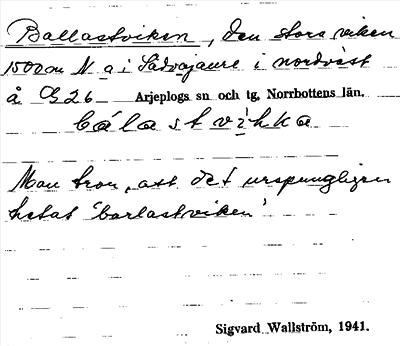 Ballastviken, den stora viken
1500 m N a i Sädvajaure i nordväst
å G26 Arjeplogs sn och tg, Norrbottens län.
bálastvihka
Man tror, att det ursprungligen
hetat 'barlastviken'
Sigvard Wallström, 1941.